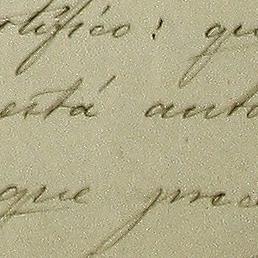 rtifico: qu
está anto
que prece